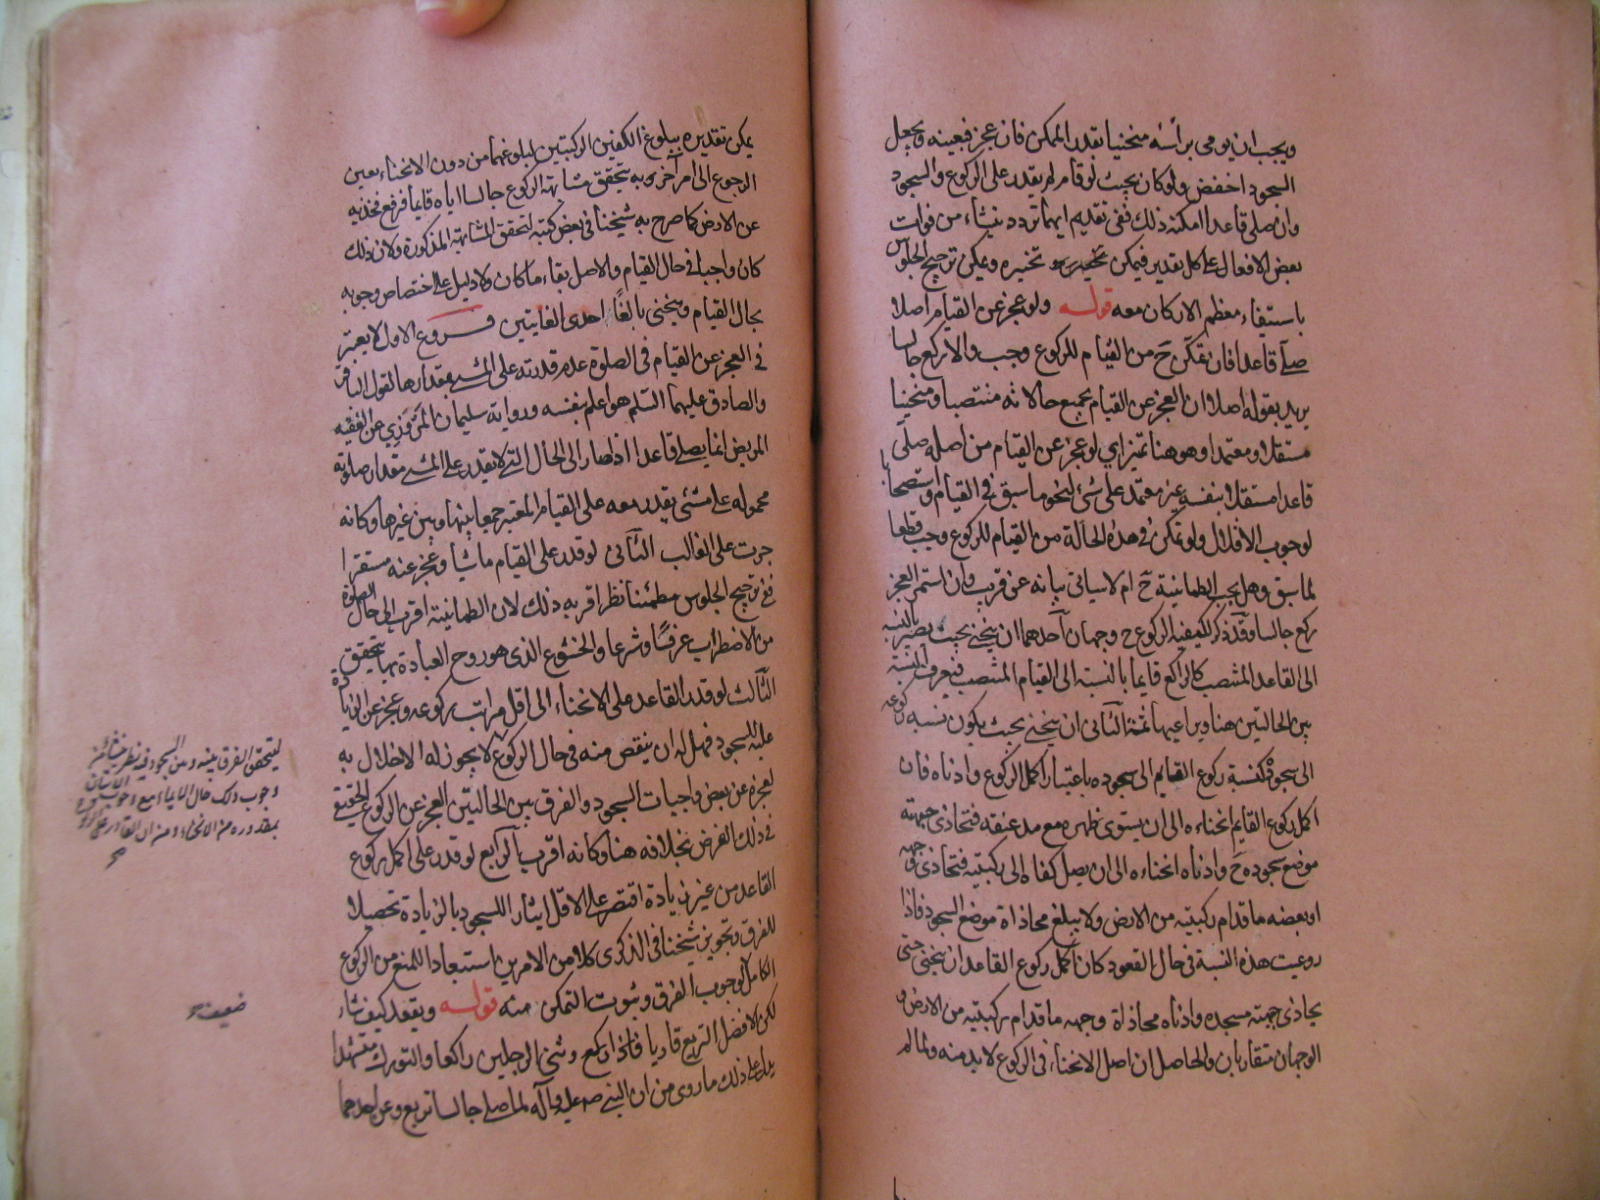 ويجب ان يومى براسه منحنيا بقدر الممكن فان عجز فبعينه ويجعل
السجود اخفض ولو كان بحيث لو قام لم يقدر على الركوع والسجود
وان صلى قاعدا امكنه ذلك ففى تقديم ايهما تردد ينشاء من فوات
بعض الافعال على كل تقدير فيمكن تخييره ويمكن ترجيح الجلوس
باستيفاء معظم الاركان معه قوله ولو عجز عن القيام اصلا
صلى قاعدا فان تمكن ح من القيام للركوع وجب والا ركع جالسا
يريد بقوله اصلا ان العجز عن القيام بجميع حالاته منتصبا ومنحنيا
مستقلا ومعتمدا وهو هنا تميز اي لو عجز عن القيام من اصله صلى
قاعدا مستقلا بنفسه غير معتمد على شئ لنحو ما سبق فى القيام واستصحابا
لوجوب الاقلال ولو تمكن فى هذه الحالة من القيام للركوع وجب قطعا
لما سبق وهل يجب الطمانينة ح ام لا سياتى بيانه عن قريب وان استمر العجز
ركع جالسا وقد ذكر لكيفية الركوع ح وجهان احدهما ان ينحنى بحيث يصير بالنسبة
الى القاعد المنتصب كالراكع قايما بالنسبة الى القيام المنتصب فيعرف النسبة
بين الحالتين هنا ويراعيها ثمة الثانى ان ينحنى بحيث يكون نسبة ركوعه
الى سجوده كنسبة ركوع القيام الى سجوده باعتبار اكمل الركوع وادناه فان
اكمل ركوع القايم انحناءه الى ان يستوى ظهره مع مد عنقه فتحاذى جبهته
موضع سجوده ح وادناه انحناءه الى ان يصل كفاه الى ركبتيه فتحاذى وجهه
او بعضه ما قدام ركبتيه من الارض ولا يبلغ محاذاة موضع السجود فاذا
روعيت هذه النسبة فى حال القعود كان اكمل ركوع القاعد ان ينحنى حتى
يحاذى جبهته مسجده وادناه محاذاة وجهه ما قدام ركبتيه من الارض و
الوجهان متقاربان والحاصل ان اصل الانحناء فى الركوع لا بد منه ولما لم
يمكن تقديره ببلوغ الكفين الركبتين لبلوغهما من دون الانحناء تعين
الرجوع الى امر آخر به يتحقق مشابهة الركوع جالسا اياه قايما فرفع فخذيه
عن الارض كما صرح به شيخنا فى بعض كتبه لتحقق المشابهة المذكورة ولان ذلك
كان واجبا فى حال القيام والاصل بقاء ما كان ولا دليل على اختصاص وجوبه
بحال القيام وينحنى بالغا احدى الغايتين فروع الاول لا يعتبر
فى العجز عن القيام فى الصلوة عدم قدرته على المشى بمقدارها لقول الباقر
والصادق عليهما السلم هو اعلم بنفسه ورواية سليمان المروزي عن الفقيه
المريض انما يصلى قاعدا اذا صار الى الحال التى لا يقدر على المشى مقدار صلوته
محمولة على مشئ يقدر معه على القيام المعتبر جمعا بينها وبين غيرها وكانه
جرت على الغالب الثانى لو قدر على القيام ماشيا وعجز عنه مستقرا
ففى ترجيح الجلوس مطمئنا نظر اقربه ذلك لان الطمانينة اقرب الى حال الصلوة
من الاضطراب عرفا وشرعا والخشوع الذى هو روح العبادة بها يتحقق
الثالث لو قدر القاعد على الانحناء الى اقل مراتب ركوعه وعجز عن الزيادة
عليه للسجود فهل له ان ينقص منه فى حال الركوع لا يجوز له الاخلال به
لعجزه عن بعض واجبات السجود والفرق بين الحالتين العجز عن الركوع الحقيقى
فى ذلك الفرض بخلافه هنا وكانه اقرب الرابع لو قدر على اكمل ركوع
القاعد من غير زيادة اقتصر على الاقل ايثارا للسجود بالزيادة تحصيلا
للفرق وتجويز شيخنا فى الذكرى كلا من الامرين استبعادا للمنع من الركوع
الكامل لوجوب الفرق وثبوت التمكن منه قوله ويقعد كيف شاء
لكن الافضل التربع قاريا فاذا ركع وثنى الرجلين راكعا والتورك متشهدا
يدل على ذلك ما روى من ان النبى صلى عليه وآله لما صلى جالسا تربع وعن احدهما
ليتحقق الفرق بينه وبين السجود فيه نظر
وجوب ذلك حال الايماء مع
بمقدوره من الانحناء ومن ان القادر على
صح
ضعيف